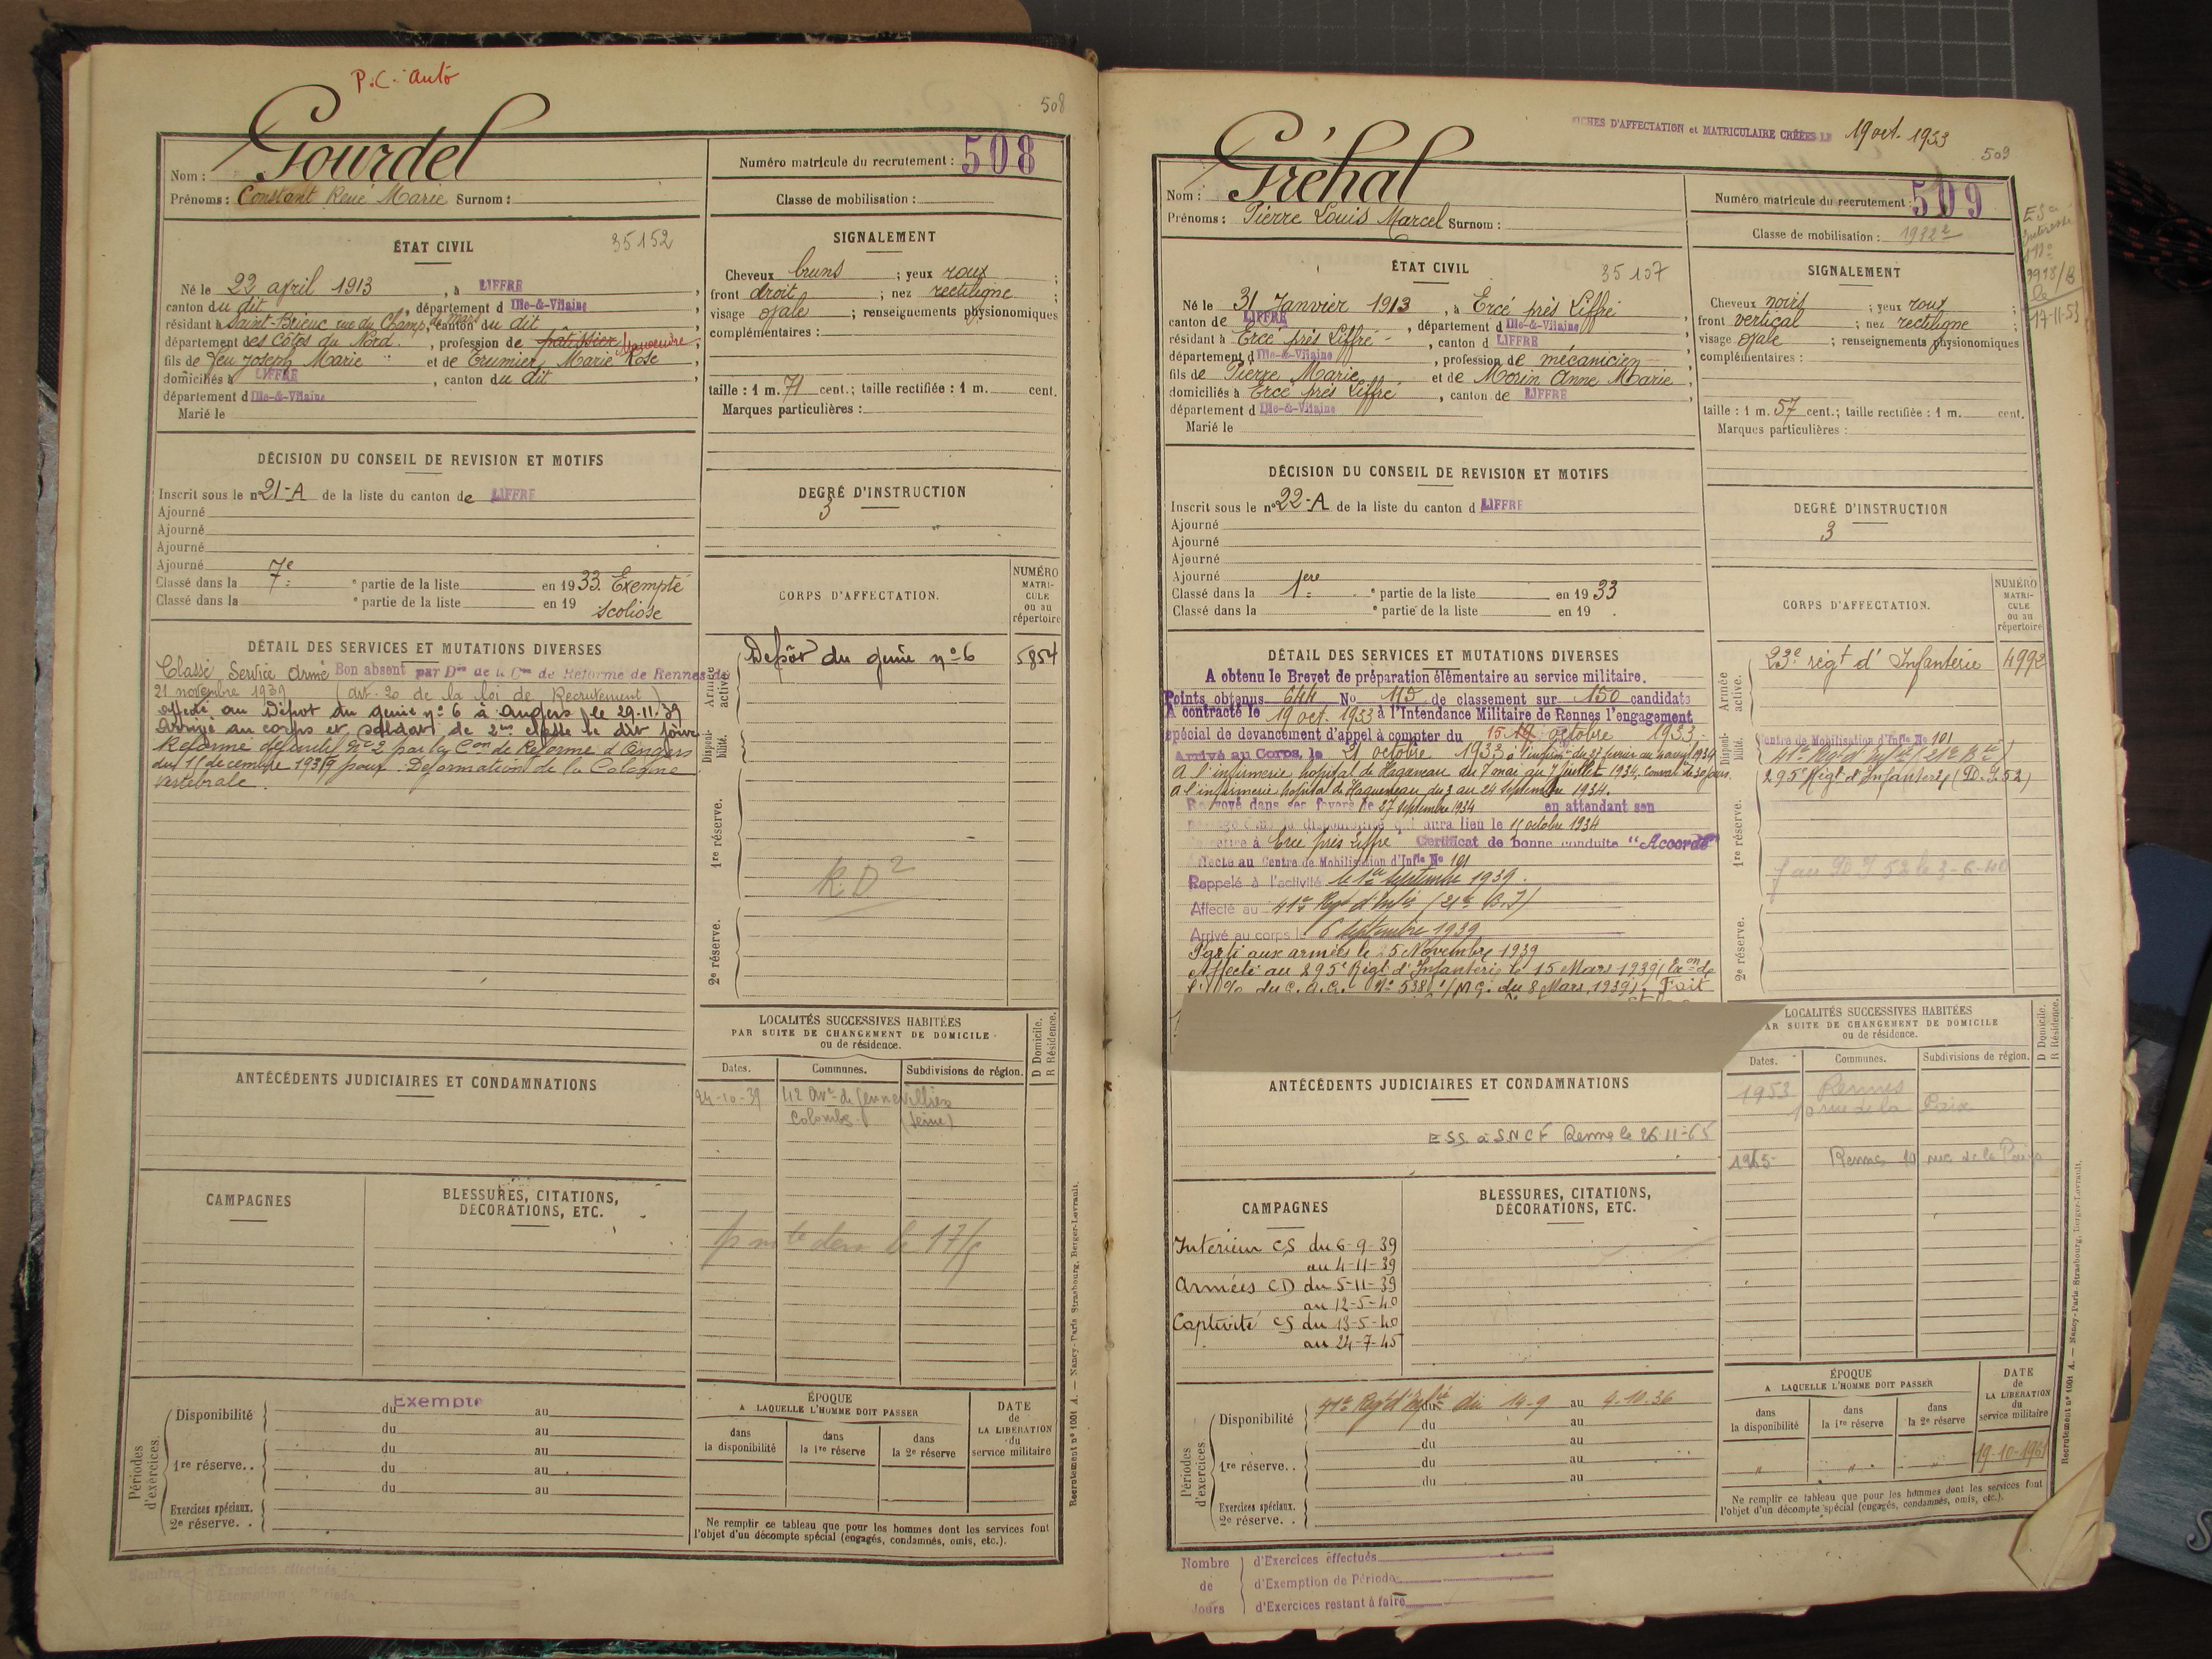 P.C. auto
508
Nom : Gourdel
Prénoms : Constant René Marie Surnom :
Numéro matricule du recrutement : 508
Classe de mobilisation :
ÉTAT CIVIL
35152
Né le 22 avril 1913, à LIFFRÉ,
canton du dit, département d Ille-&-Vilaine
résidant à Saint-Brieuc rue du Champ de Mars, canton du dit,
département des Côtes du Nord, profession de pâtissier Manoeuvre,
fils de feu Joseph Marie et de Erumier, Marie Rose
domiciliés à LIFFRÉ, canton du dit,
département d Ille-&-Vilaine
Marié le
SIGNALEMENT
Cheveux bruns ; yeux roux ;
front droit ; nez rectiligne ;
visage ovale ; renseignements physionomiques
complémentaires :
taille : 1 m. 71 cent.; taille rectifiée : 1 m. cent.
Marques particulières :
DÉCISION DU CONSEIL DE REVISION ET MOTIFS
Inscrit sous le n° 21-A de la liste du canton de LIFFRÉ
Ajourné
Ajourné
Ajourné
Ajourné
Classé dans la 7e ° partie de la liste en 1933. Exempté
Classé dans la ° partie de la liste en 19 scoliose
DEGRÉ D'INSTRUCTION
3
DÉTAIL DES SERVICES ET MUTATIONS DIVERSES
Classé Service Armé Bon absent par Don de la Con de Réforme de Rennes du
21 novembre 1939 (art. 20 de la loi de Recrutement)
affecté au Dépôt du génie n° 6 à Angers le 29-11-39
Arrivé au corps et soldat de 2me classe le dit jour
Réformé définitif N° 2 par la Con de Réforme d'Angers
du 11 décembre 1939 pour Déformation de la Colonne
vertébrale.
CORPS D'AFFECTATION.
NUMÉRO MATRI-CULE ou au répertoire
Armée active.
Dépôt du génie n° 6
5854
Disponi-bilité.
1re réserve.
R.D 2
2e réserve.
LOCALITÉS SUCCESSIVES HABITÉES
PAR SUITE DE CHANGEMENT DE DOMICILE
ou de résidence.
D Domicile.
R Résidence.
Dates.
Communes.
Subdivisions de région.
24-10-39 42 Ave de Gennevilliers
Colombes (Seine)
ANTÉCÉDENTS JUDICIAIRES ET CONDAMNATIONS
CAMPAGNES
BLESSURES, CITATIONS,
DÉCORATIONS, ETC.
Périodes d'exercices.
Disponibilité du Exempté au
du au
1re réserve.. du au
du au
du au
Exercices spéciaux.
2e réserve. .
ÉPOQUE
A LAQUELLE L'HOMME DOIT PASSER
dans la disponibilité
dans la 1re réserve
dans la 2e réserve
DATE
de
LA LIBÉRATION
du
service militaire
Ne remplir ce tableau que pour les hommes dont les services font
l'objet d'un décompte spécial (engagés, condamnés, omis, etc.).
Recrutement n° 1001 A. — Nancy-Paris-Strasbourg, Berger-Levrault.
Nombre de Jours
d'Exercices effectués
d'Exemption de Période
FICHES D'AFFECTATION et MATRICULAIRE CRÉÉES LE 19 oct. 1933
509
Nom : Gréhal
Prénoms : Pierre Louis Marcel Surnom :
Numéro matricule du recrutement : 509
Classe de mobilisation : 1932 2
ÉTAT CIVIL
35107
Né le 31 Janvier 1913, à Ercé près Liffré
canton de LIFFRÉ, département d Ille-&-Vilaine
résidant à Ercé près Liffré, canton d LIFFRÉ
département d Ille-&-Vilaine, profession de mécanicien
fils de Pierre Marie et de Morin Anne Marie
domiciliés à Ercé près Liffré, canton de LIFFRÉ
département d Ille-&-Vilaine
Marié le
SIGNALEMENT
Cheveux noirs ; yeux roux ;
front vertical ; nez rectiligne ;
visage ovale ; renseignements physionomiques
complémentaires :
taille : 1 m. 57 cent.; taille rectifiée : 1 m. cent.
Marques particulières :
17-11-53
DÉCISION DU CONSEIL DE REVISION ET MOTIFS
Inscrit sous le n° 22-A de la liste du canton d LIFFRÉ
Ajourné
Ajourné
Ajourné
Ajourné
Classé dans la 1ere ° partie de la liste en 1933
Classé dans la ° partie de la liste en 19 .
DEGRÉ D'INSTRUCTION
3
DÉTAIL DES SERVICES ET MUTATIONS DIVERSES
A obtenu le Brevet de préparation élémentaire au service militaire.
Points obtenus 644 No 115 de classement sur 150 candidats
A contracté le 19 oct. 1933 à l'Intendance Militaire de Rennes l'engagement
spécial de devancement d'appel à compter du 15 octobre 1933
Arrivé au Corps, le 21 octobre 1933
A l'infirmerie hopital de Haguenau du 7 mai au 7 juillet 1934, Conval. de 30 jours.
A l'infirmerie hopital de Haguenau du 3 au 24 septembre 1934.
Renvoyé dans ses foyers le 27 septembre 1934 en attendant son
passage dans la disponibilité qui aura lieu le 15 octobre 1934
Se retire à Ercé près Liffré Certificat de bonne conduite "Accordé"
Affecté au Centre de Mobilisation d'Infie No 101
Rappelé à l'activité le 1er Septembre 1939.
Affecté au 41e Regt d'Infie (21e B.I)
Arrivé au corps le 6 Septembre 1939
Parti aux armées le 5 Novembre 1939
Affecté au 295e Régt d'Infanterie le 15 Mars 1939 (Exon de
du C.A.C. N° 538 /MG. du 8 Mars 1939). Fait
CORPS D'AFFECTATION.
NUMÉRO MATRI-CULE ou au répertoire
Armée active.
23e régt d'Infanterie
4992
Disponi-bilité.
Centre de Mobilisation d'Infie No 101
41e Régt d'Infie (21e Bie)
295e Régt d'Infanterie (D.I. 52)
1re réserve.
52 le 3-6-40
2e réserve.
LOCALITÉS SUCCESSIVES HABITÉES
PAR SUITE DE CHANGEMENT DE DOMICILE
ou de résidence.
D Domicile.
R Résidence.
Dates.
Communes.
Subdivisions de région.
1953 Rennes
10 rue de la Paix
1965 Rennes 10 rue de la Paix
ANTÉCÉDENTS JUDICIAIRES ET CONDAMNATIONS
ESS à SNCF Rennes le 26-11-65
CAMPAGNES
Intérieur CS du 6-9-39
au 4-11-39
Armées CD du 5-11-39
au 12-5-40
Captivité CS du 13-5-40
au 24-7-45
BLESSURES, CITATIONS,
DÉCORATIONS, ETC.
Périodes d'exercices.
Disponibilité 41e Regt d'Infie du 19-9 au 9-10-36
du au
1re réserve.. du au
du au
du au
Exercices spéciaux.
2e réserve. .
ÉPOQUE
A LAQUELLE L'HOMME DOIT PASSER
dans la disponibilité
dans la 1re réserve
dans la 2e réserve
DATE
de
LA LIBÉRATION
du
service militaire
" " " 19-10-1961
Ne remplir ce tableau que pour les hommes dont les services font
l'objet d'un décompte spécial (engagés, condamnés, omis, etc.).
Recrutement n° 1001 A. — Nancy-Paris-Strasbourg, Berger-Levrault.
Nombre de Jours
d'Exercices effectués
d'Exemption de Période
d'Exercices restant à faire